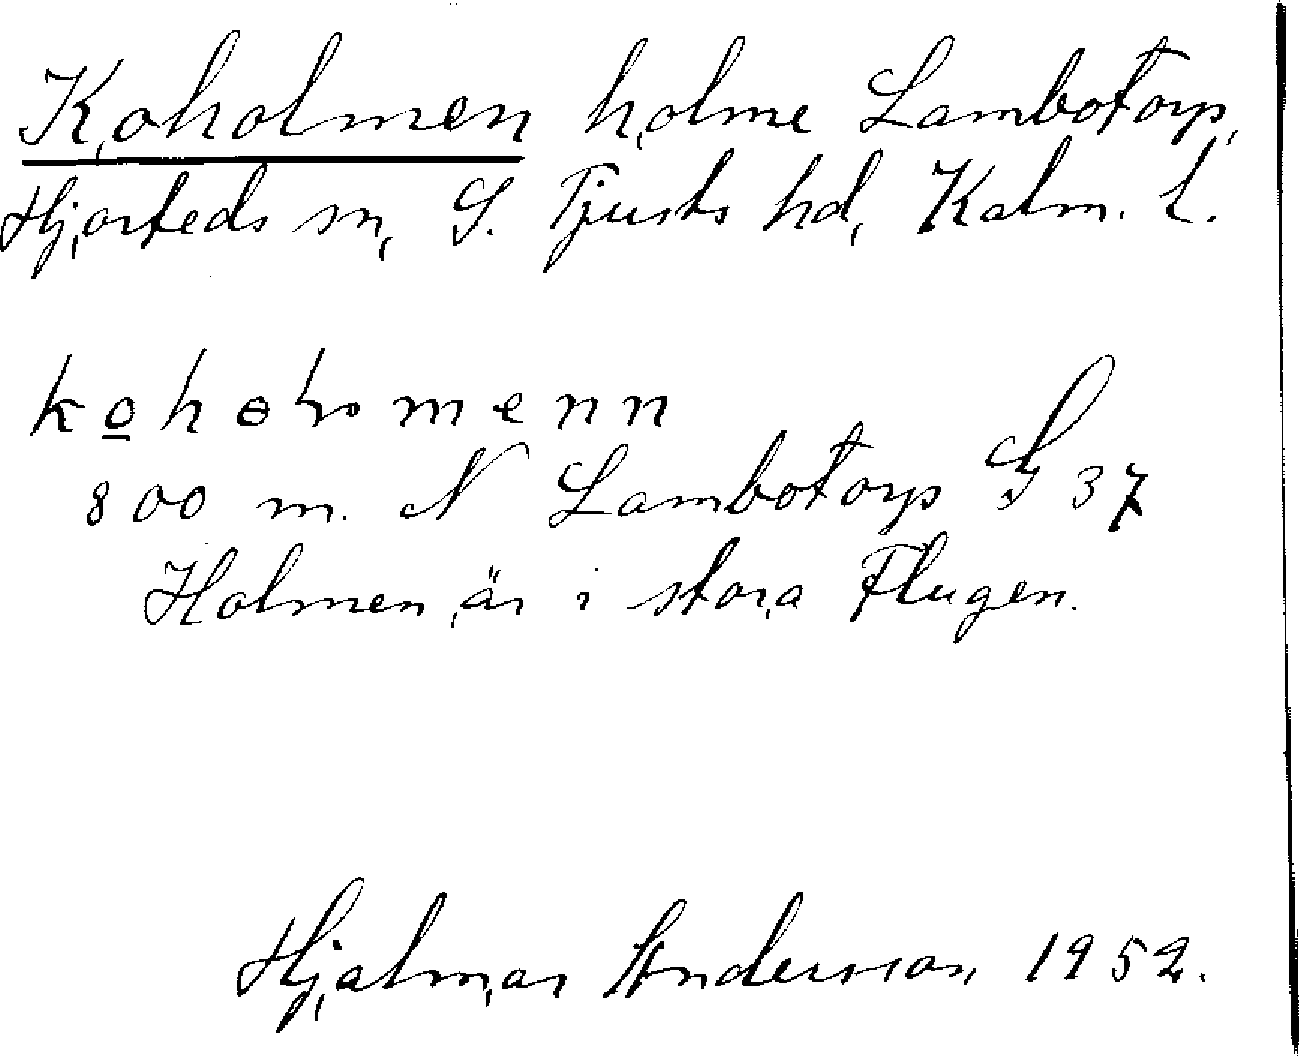 Koholmen holme Lambotorp,
Hjorteds sn, S. Tjusts hd, Kalm. L.
800 m. N Lambotorp G 37
Holmen är i stora Flugen.
Hjalmar Anderson 1952.